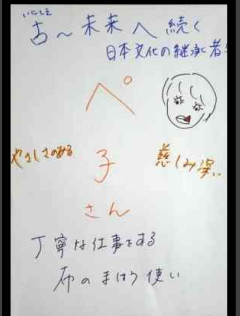 いにしえ
古～未来へ続く
日本文化の継承者!
ペ
子
さん
やさしさのある
慈しみ深い
丁寧な仕事をする
布のまほう使い